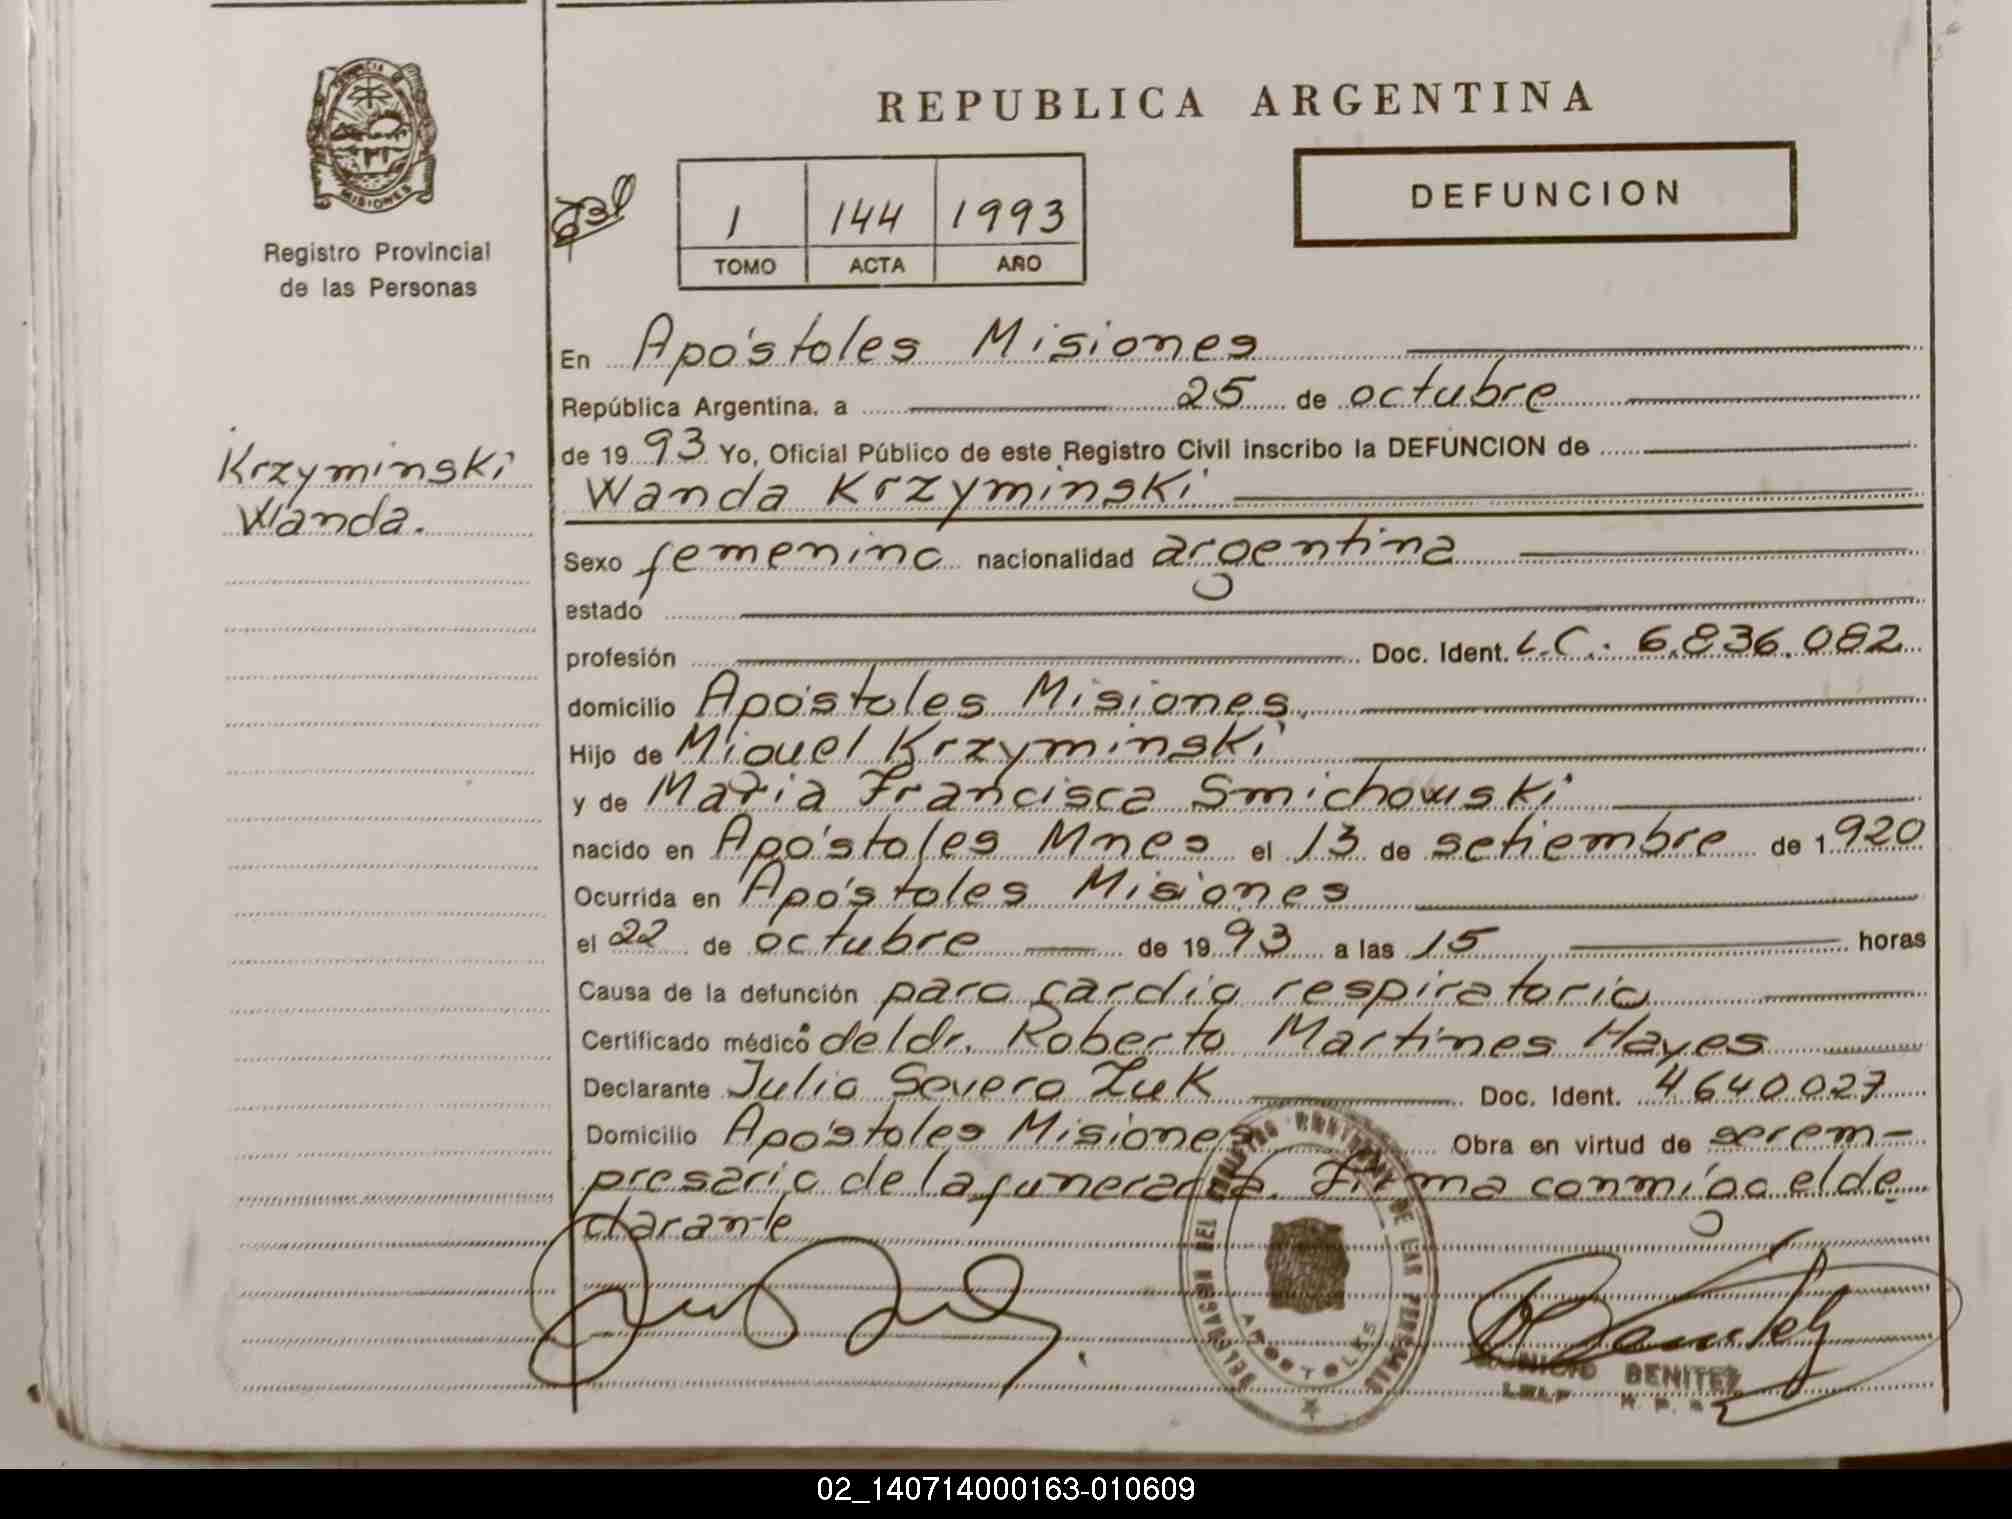 PROVINCIA DE
MISIONES
Registro Provincial
de las Personas
Krzyminski
Wanda.
REPUBLICA ARGENTINA
1 144 1993
TOMO ACTA AÑO
DEFUNCION
En Apóstoles Misiones
República Argentina, a 25 de octubre
de 1993 Yo, Oficial Público de este Registro Civil inscribo la DEFUNCION de
Wanda Krzyminski
Sexo femenino nacionalidad argentina
estado
profesión Doc. Ident. L.C.: 6.836.082
domicilio Apóstoles Misiones.
Hijo de Miguel Krzyminski
y de Maria Francisca Smichowski
nacido en Apóstoles Mnes el 13 de setiembre de 1920
Ocurrida en Apóstoles Misiones
el 22 de octubre de 1993 a las 15 horas
Causa de la defunción paro cardio respiratorio
Certificado médico del dr. Roberto Martines Hayes
Declarante Julio Severo Zuk Doc. Ident. 4640027
Domicilio Apóstoles Misiones Obra en virtud de ser em-
presario de la funeraria. Firma conmigo el de
clarante
APOSTOLES
BENITEZ
02_140714000163-010609